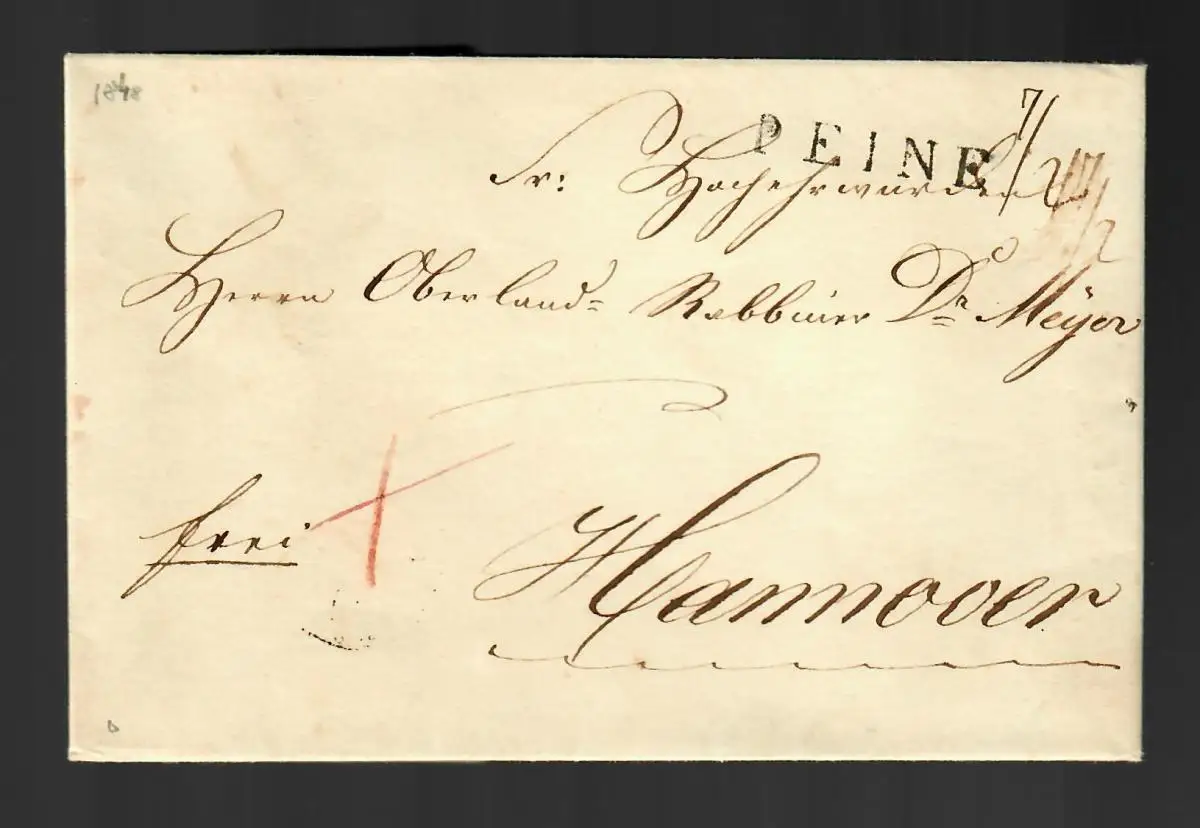 1848
PEINE 7/2
Sr: Hochehrwürden
Herrn Oberland= Rabbiner Dr Meÿer
frei
Hannover